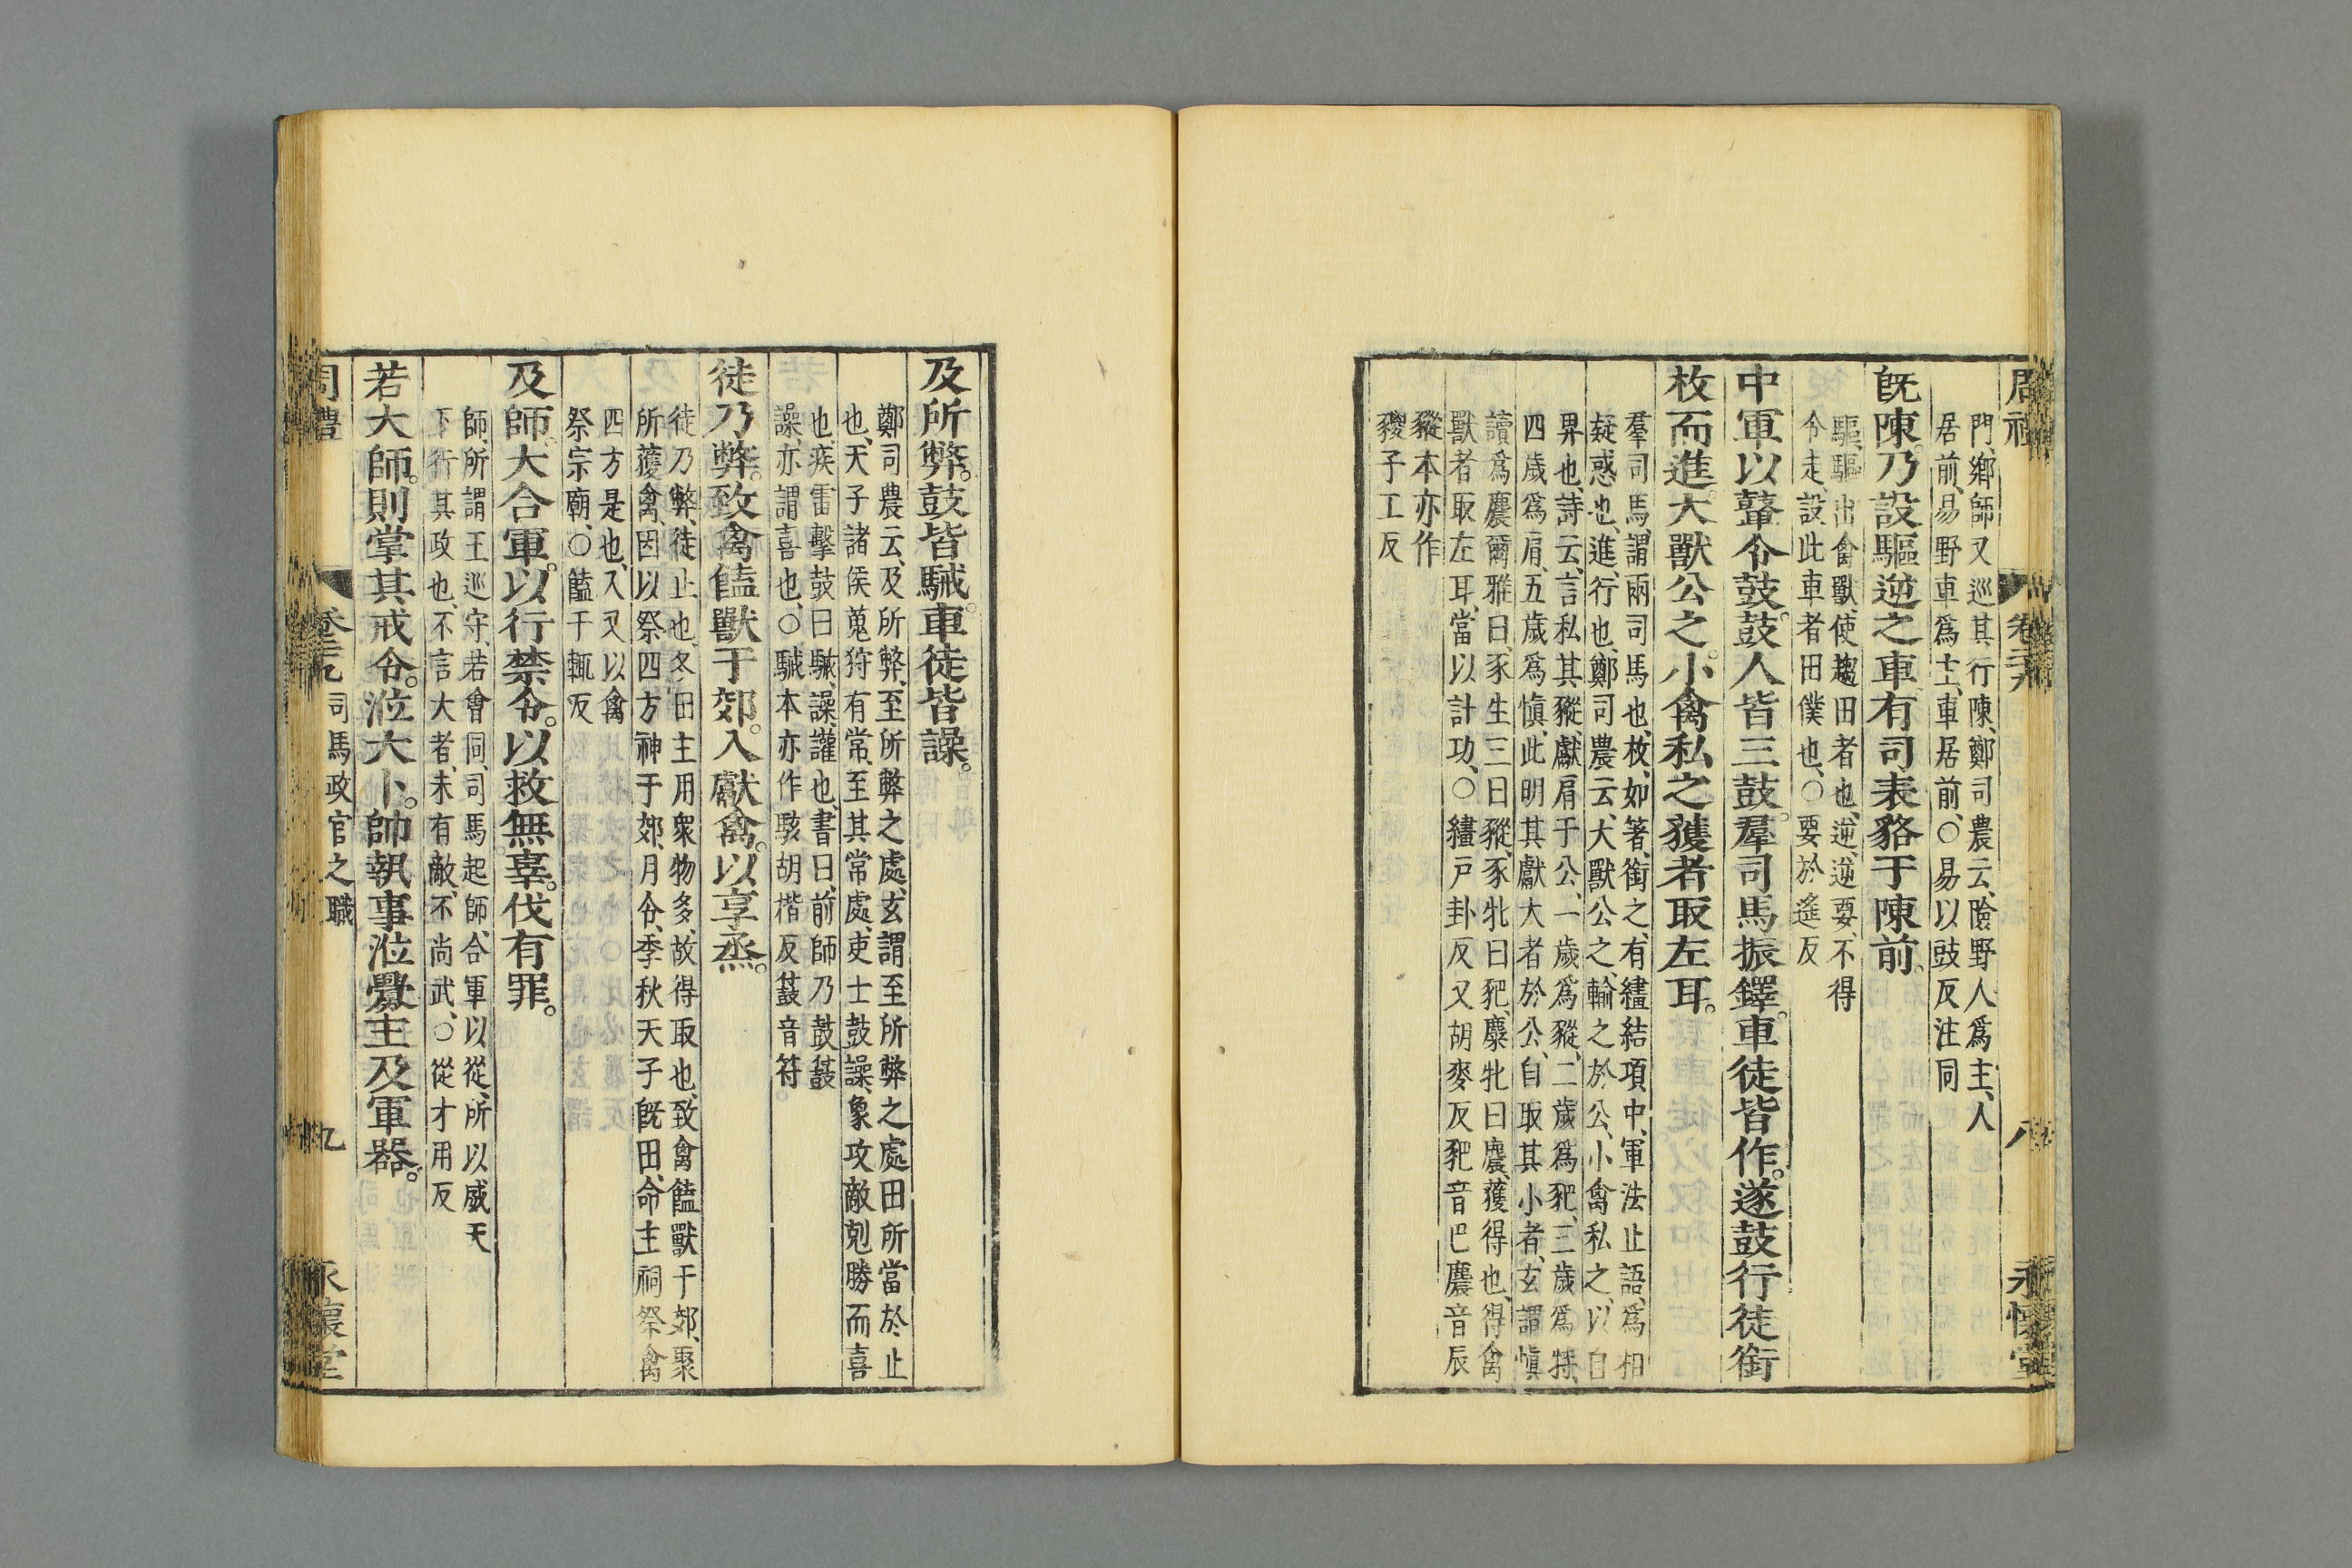 周禮 卷二十九 八 永懷堂
門、鄉師又巡其行陳、鄭司農云、險野人爲主、人
居前、易野車爲主、車居前、○易以豉反注同
旣陳。乃設驅逆之車。有司表貉于陳前。
驅驅出禽獸、使趨田者也、逆、逆要、不得
令走、設此車者田僕也、○要於遙反
中軍以鼙令鼓。鼓人皆三鼓。羣司馬振鐸。車徒皆作。遂鼓行。徒銜
枚而進。大獸公之。小禽私之。獲者取左耳。
羣司馬、謂兩司馬也、枚、如箸、銜之、有繣結項中、軍法止語、爲相
疑惑也、進、行也、鄭司農云、大獸公之、輸之於公、小禽私之、以自
畀也、詩云、言私其豵、獻肩于公、一歲爲豵、二歲爲豝、三歲爲特、
四歲爲肩、五歲爲慎、此明其獻大者於公、自取其小者、玄謂慎
讀爲麎、爾雅曰、豕生三曰豵、豕牝曰豝、麋牝曰麎、獲得也、得禽
獸者取左耳、當以計功、○繣戶卦反又胡麥反豝音巴麎音辰
豵本亦作
豵子工反
及所弊。鼓皆駴。車徒皆譟。
鄭司農云、及所弊、至所弊之處、玄謂至所弊之處田所當於止
也、天子諸侯蒐狩有常、至其常處、吏士鼓譟、象攻敵剋勝而喜
也、疾雷擊鼓曰駴、譟、讙也、書曰、前師乃鼓䥯
譟、亦謂喜也、○駴本亦作駭胡楷反䥯音符
徒乃弊。致禽饁獸于郊。入獻禽。以享烝。
徒乃弊、徒止也、冬田主用衆物多、故得取也、致禽饁獸于郊、聚
所獲禽、因以祭四方神于郊、月令、季秋天子旣田、命主祠祭禽
四方是也、入又以禽
祭宗廟、○饁于輒反
及師。大合軍。以行禁令。以救無辜。伐有罪。
師、所謂王巡守、若會同、司馬起師、合軍以從、所以威天
下、行其政也、不言大者、未有敵、不尚武、○從才用反
若大師。則掌其戒令。涖大卜。帥執事涖釁主及軍器。
周禮 卷二十九 司馬政官之職 九 永懷堂